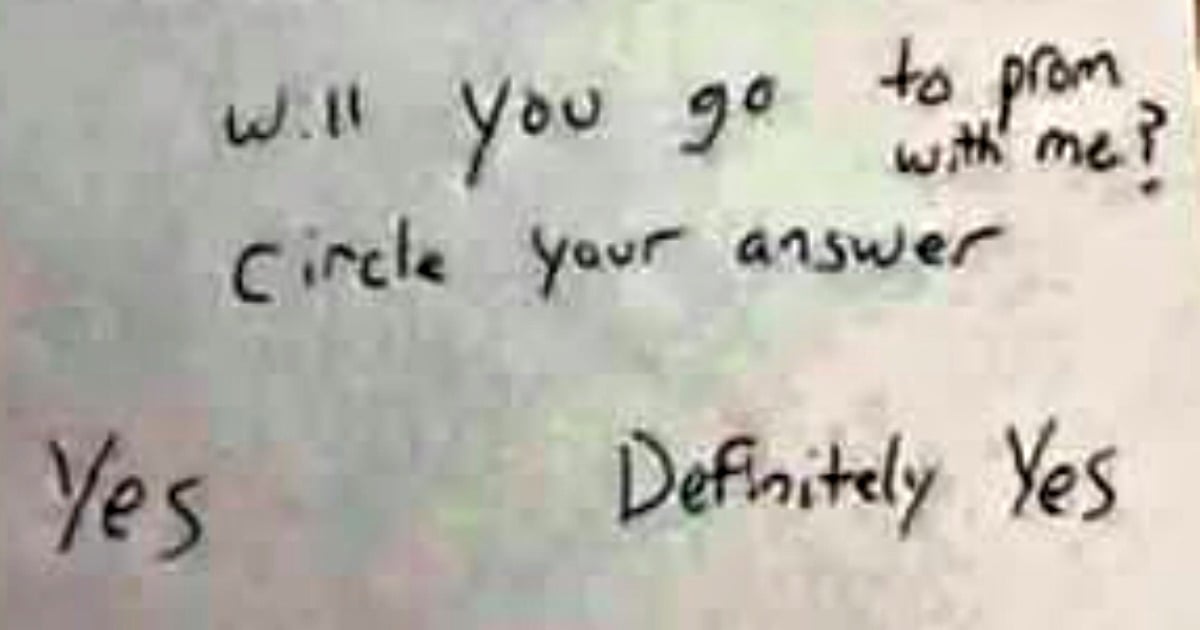 Will you go to prom
with me?
Circle your answer
Yes Definitely Yes